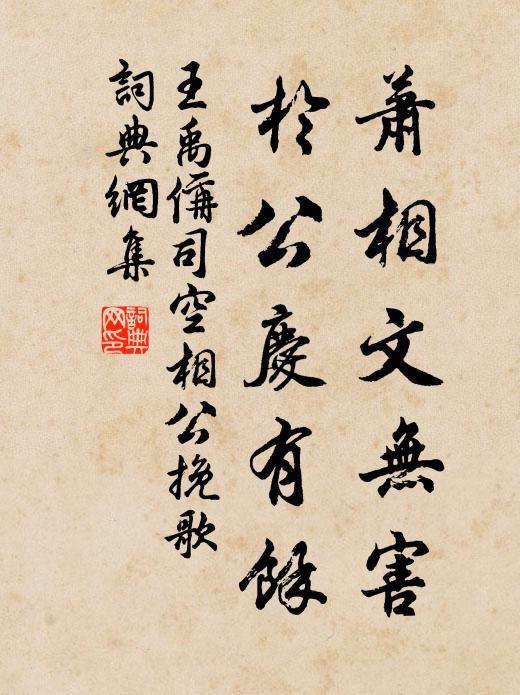 蕭相文無害
於公慶有餘
王禹偁司空相公挽歌
詞典網集
詞典网印